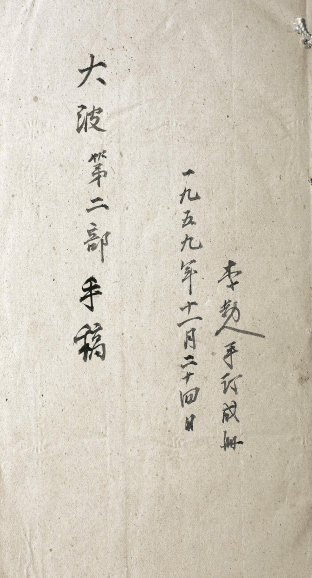 大波第二部手稿
一九五九年十一月二十四日
李劼人手订成册